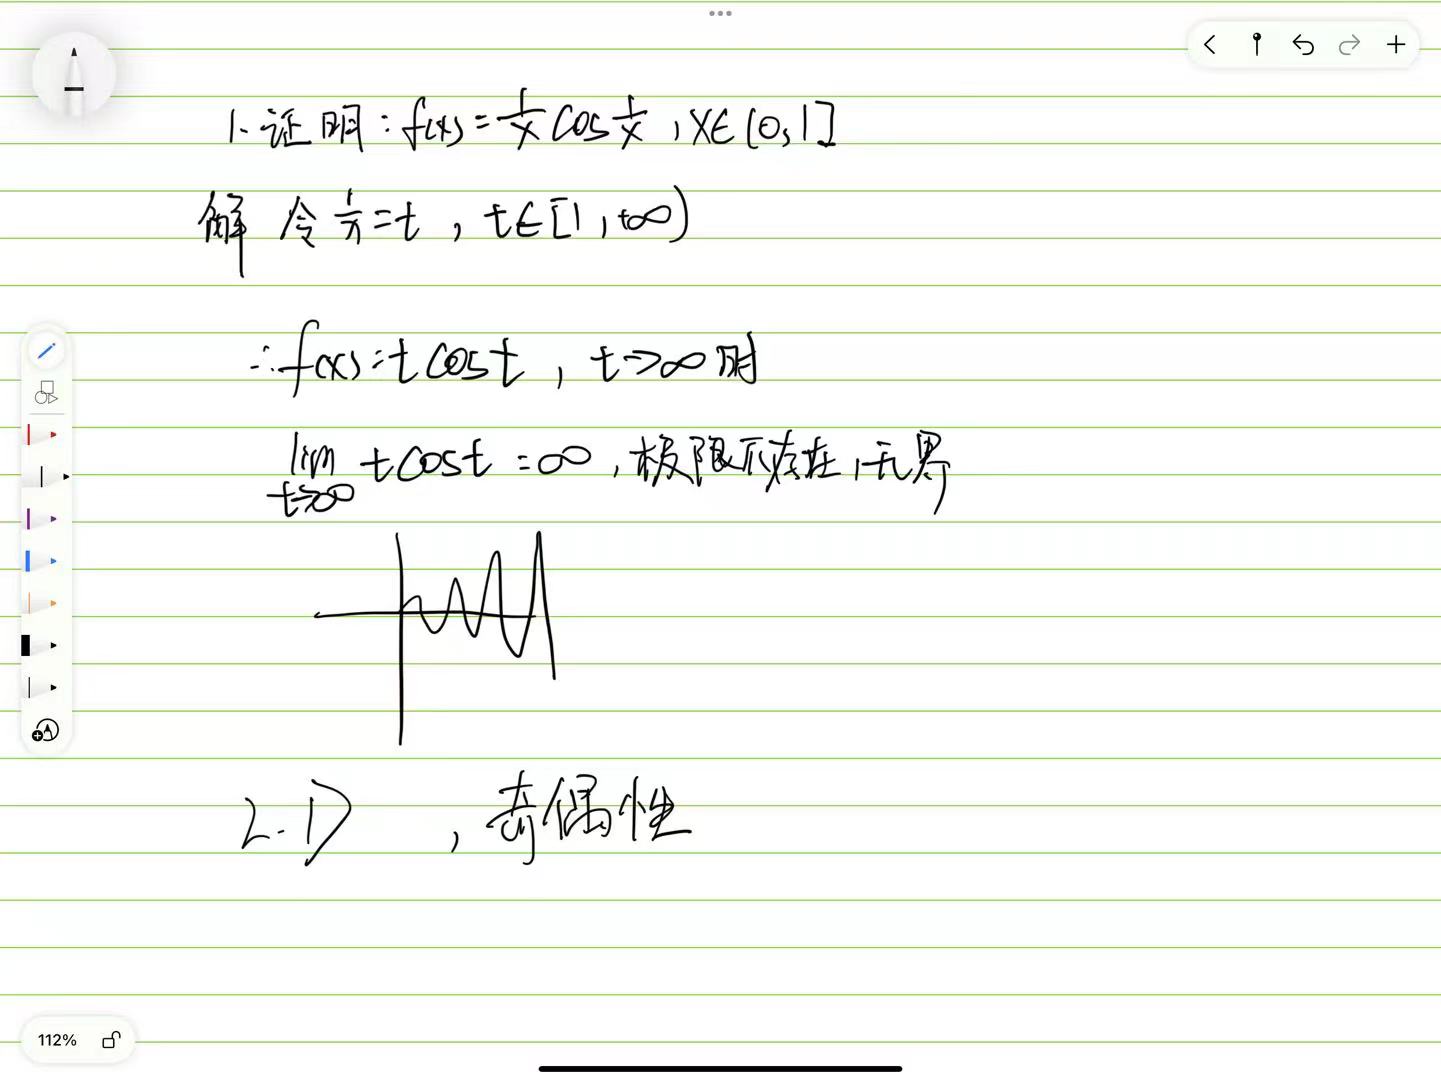 1.证明：f(x)=1/x cos 1/x，x∈(0,1]
解 令 1/x=t，t∈[1,+∞)
∴f(x)=t cos t，t→∞时
lim t→∞ t cos t =∞，极限不存在，无界
2.1) ，奇偶性
112%